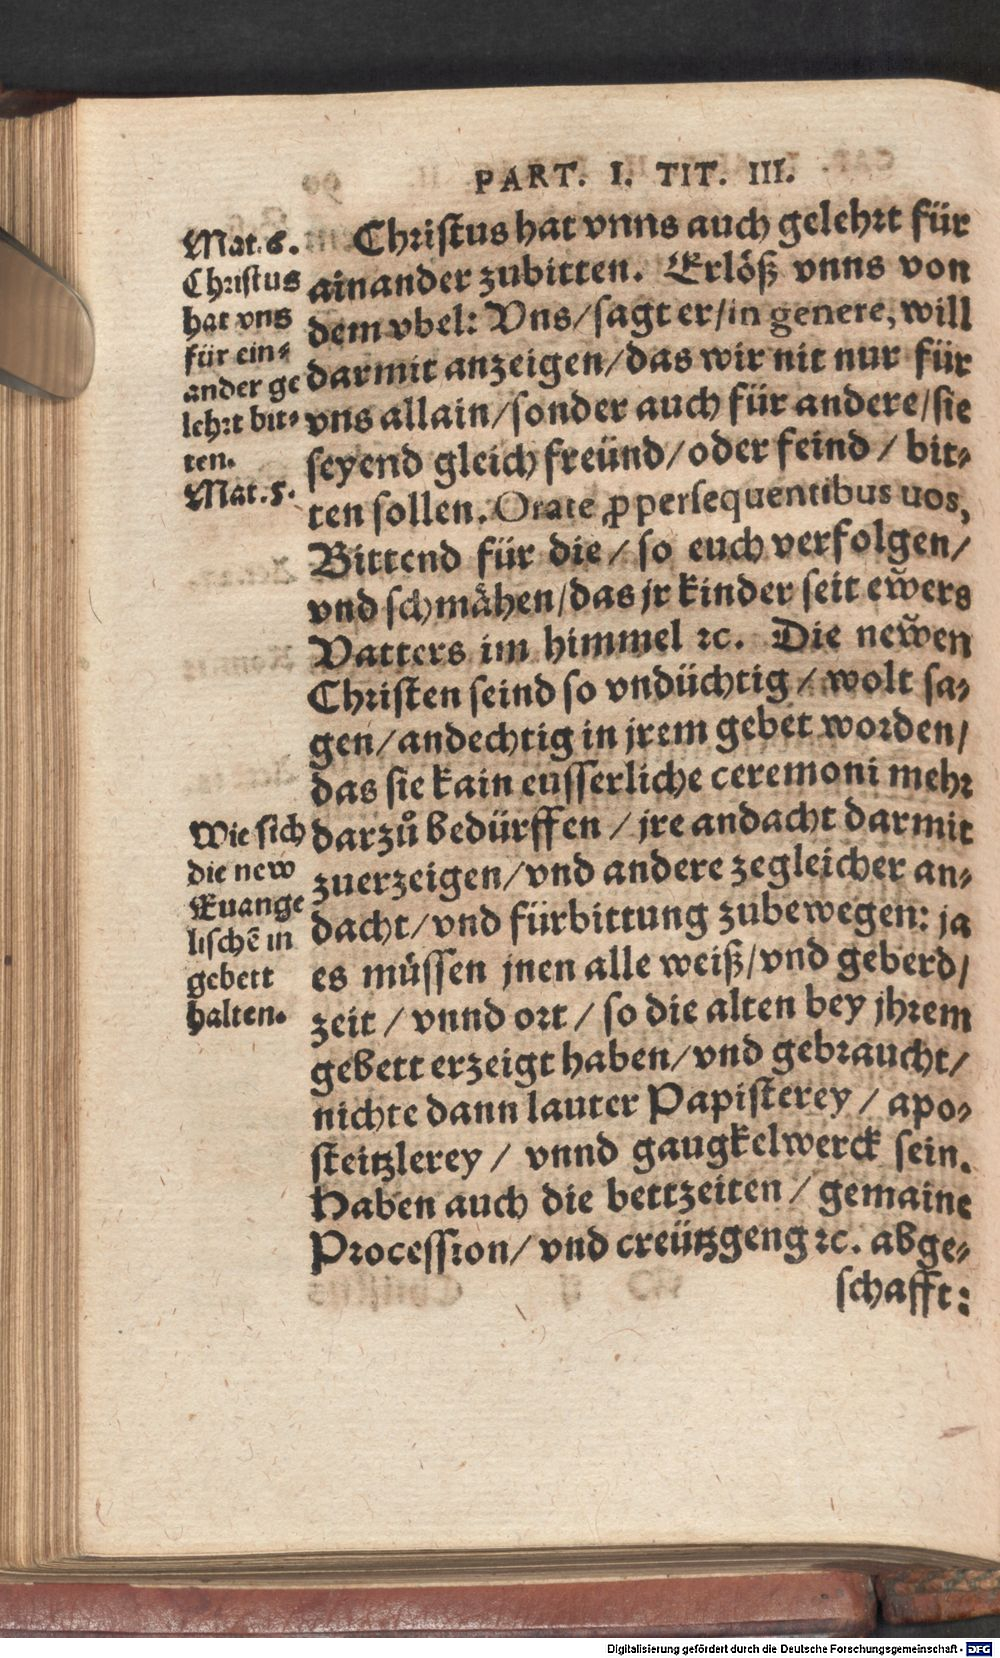 PART. I. TIT. III.
Mat. 6.
Christus
hat vns
für ein⸗
ander ge
lehrt bit⸗
ten.
Mat. 5.
Christus hat vnns auch gelehrt für
ainander zubitten. Erlöß vnns von
dem vbel: Vns/sagt er/in genere, will
darmit anzeigen/das wir nit nur für
vns allain/sonder auch für andere/sie
seyend gleich freünd/oder feind/ bit⸗
ten sollen. Orate ꝓ persequentibus uos,
Bittend für die/ so euch verfolgen/
vnd schmähen/das jr kinder seit ew̃ers
Vatters im himmel ꝛc. Die new̃en
Christen seind so vndüchtig/ wolt sa⸗
gen/andechtig in jrem gebet worden/
das sie kain eusserliche ceremoni mehr
darzů bedürffen/ jre andacht darmit
zuerzeigen/vnd andere zegleicher an⸗
dacht/vnd fürbittung zubewegen: ja
es müssen jnen alle weiß/vnd geberd/
zeit/ vnnd ort/ so die alten bey jhrem
gebett erzeigt haben/vnd gebraucht/
nichte dann lauter Papisterey/ apo⸗
steitzlerey/ vnnd gaugkelwerck sein.
Haben auch die bettzeiten/ gemaine
Procession/ vnd creützgeng ꝛc. abge⸗
schafft:
Wie sich
die new
Euange
lischē in
gebett
halten.
Digitalisierung gefördert durch die Deutsche Forschungsgemeinschaft - DFG